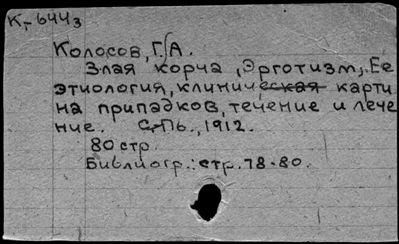 К-644з
Колосов, Г. А.
Злая корча, Эрготизм, Ее
этиология, клиническая карти
на припадков, течение и лече
ние. С-Пб., 1912.
80 стр.
Библиогр.: стр. 78-80.